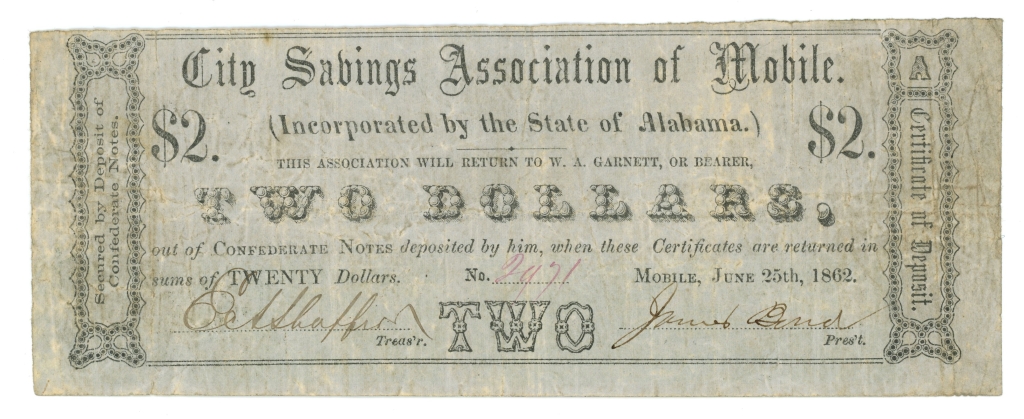 City Savings Association of Mobile.
$2.
(Incorporated by the State of Alabama.)
$2.
THIS ASSOCIATION WILL RETURN TO W. A. GARNETT, OR BEARER,
TWO DOLLARS,
out of CONFEDERATE NOTES deposited by him, when these Certificates are returned in
sums of TWENTY Dollars. No. 2971 MOBILE, JUNE 25th, 1862.
Treas'r.
TWO
James Bond
Pres't.
Secured by Deposit of
Confederate Notes.
A
Certificate of Deposit.